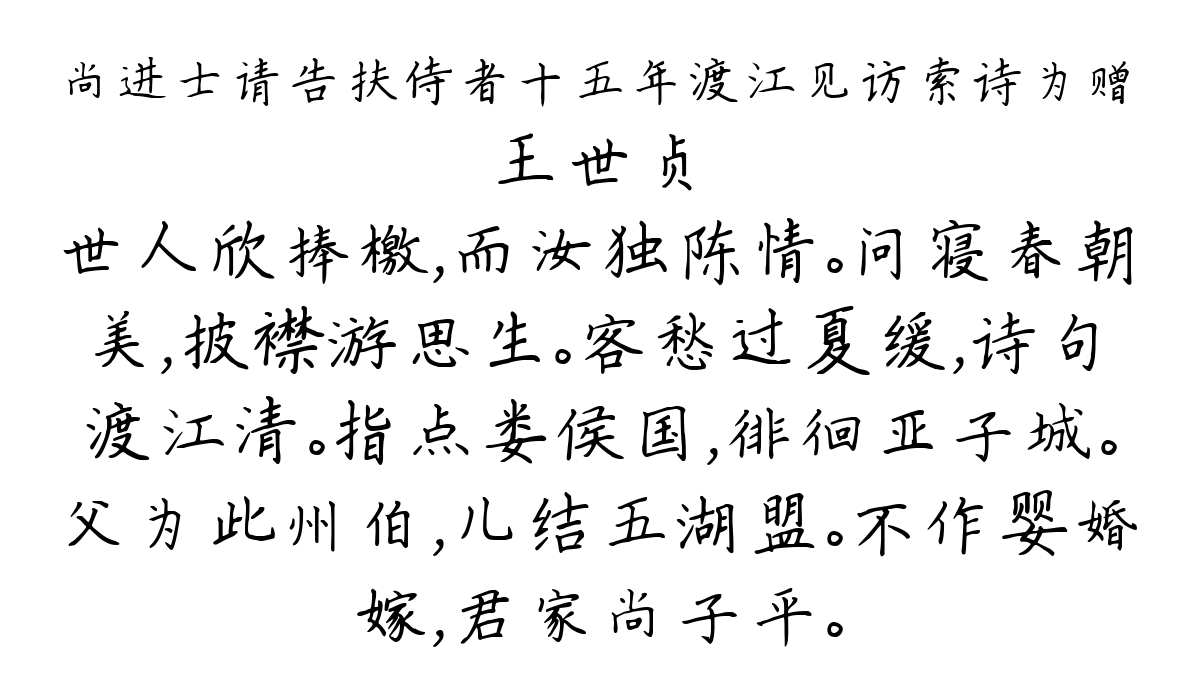 尚进士请告扶侍者十五年渡江见访索诗为赠
王世贞
世人欣捧檄,而汝独陈情。问寝春朝
美,披襟游思生。客愁过夏缓,诗句
渡江清。指点娄侯国,徘徊亚子城。
父为此州伯,儿结五湖盟。不作婴婚
嫁,君家尚子平。